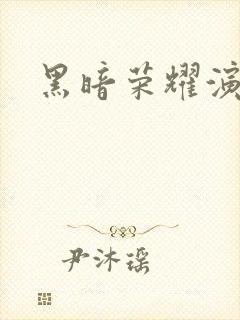 黑暗荣耀演
尹沐瑶